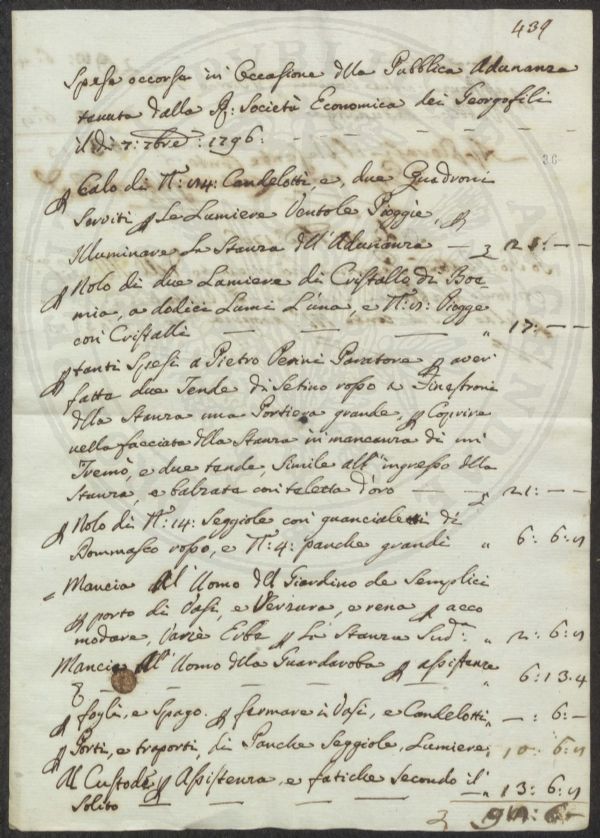 439
Spese occorse in Occasione dlla Pubblica Adunanza
tenuta dalla R: Società Economica dei Georgofili
il dì 7: 7bre: 1796:
36
Calo di N: 114: Candelotti, e, due Quadroni
Serviti p Le Lumiere Ventole Piogge, p
Illuminare La Stanza dll'Adunanza
Nolo di due Lumiere di Cristallo di Boe
mia, a dodici Lumi L'una, e N: Piogge
con Cristalli 17: — —
p tanti Spesi a Pietro Paratore p aver
fatta due Tende di Setino rosso a Finestroni
dlla Stanza una Portiera grande, p Coprire
nella facciata dlla Stanza in mancanza di un
Tremò, e due tende, Simile all'ingresso dlla
Stanza, e balzata con teletta d'oro — — 21: — —
p Nolo di N: 14: Seggiole con guancialetti di
Dommasco rosso, e N: 4: panche grandi 6: 6: 8
Mancia Al Uomo dl Giardino de Semplici
p porto di Vasi, e Verzura, e rena p acco
modare, Varie Erbe p La Stanza Sudda 2: 6: 8
Mancia All'Uomo dlla Guardaroba p assistenza
6: 13. 4
p fogli, e Spago. p fermare i Vasi, e Candelotti — : 6: —
p Porti, e traporti, di Panche Seggiole, Lumiere 10: 6: 8
Al Custode p Assistenza, e fatiche secondo il
Solito 13: 6: 8